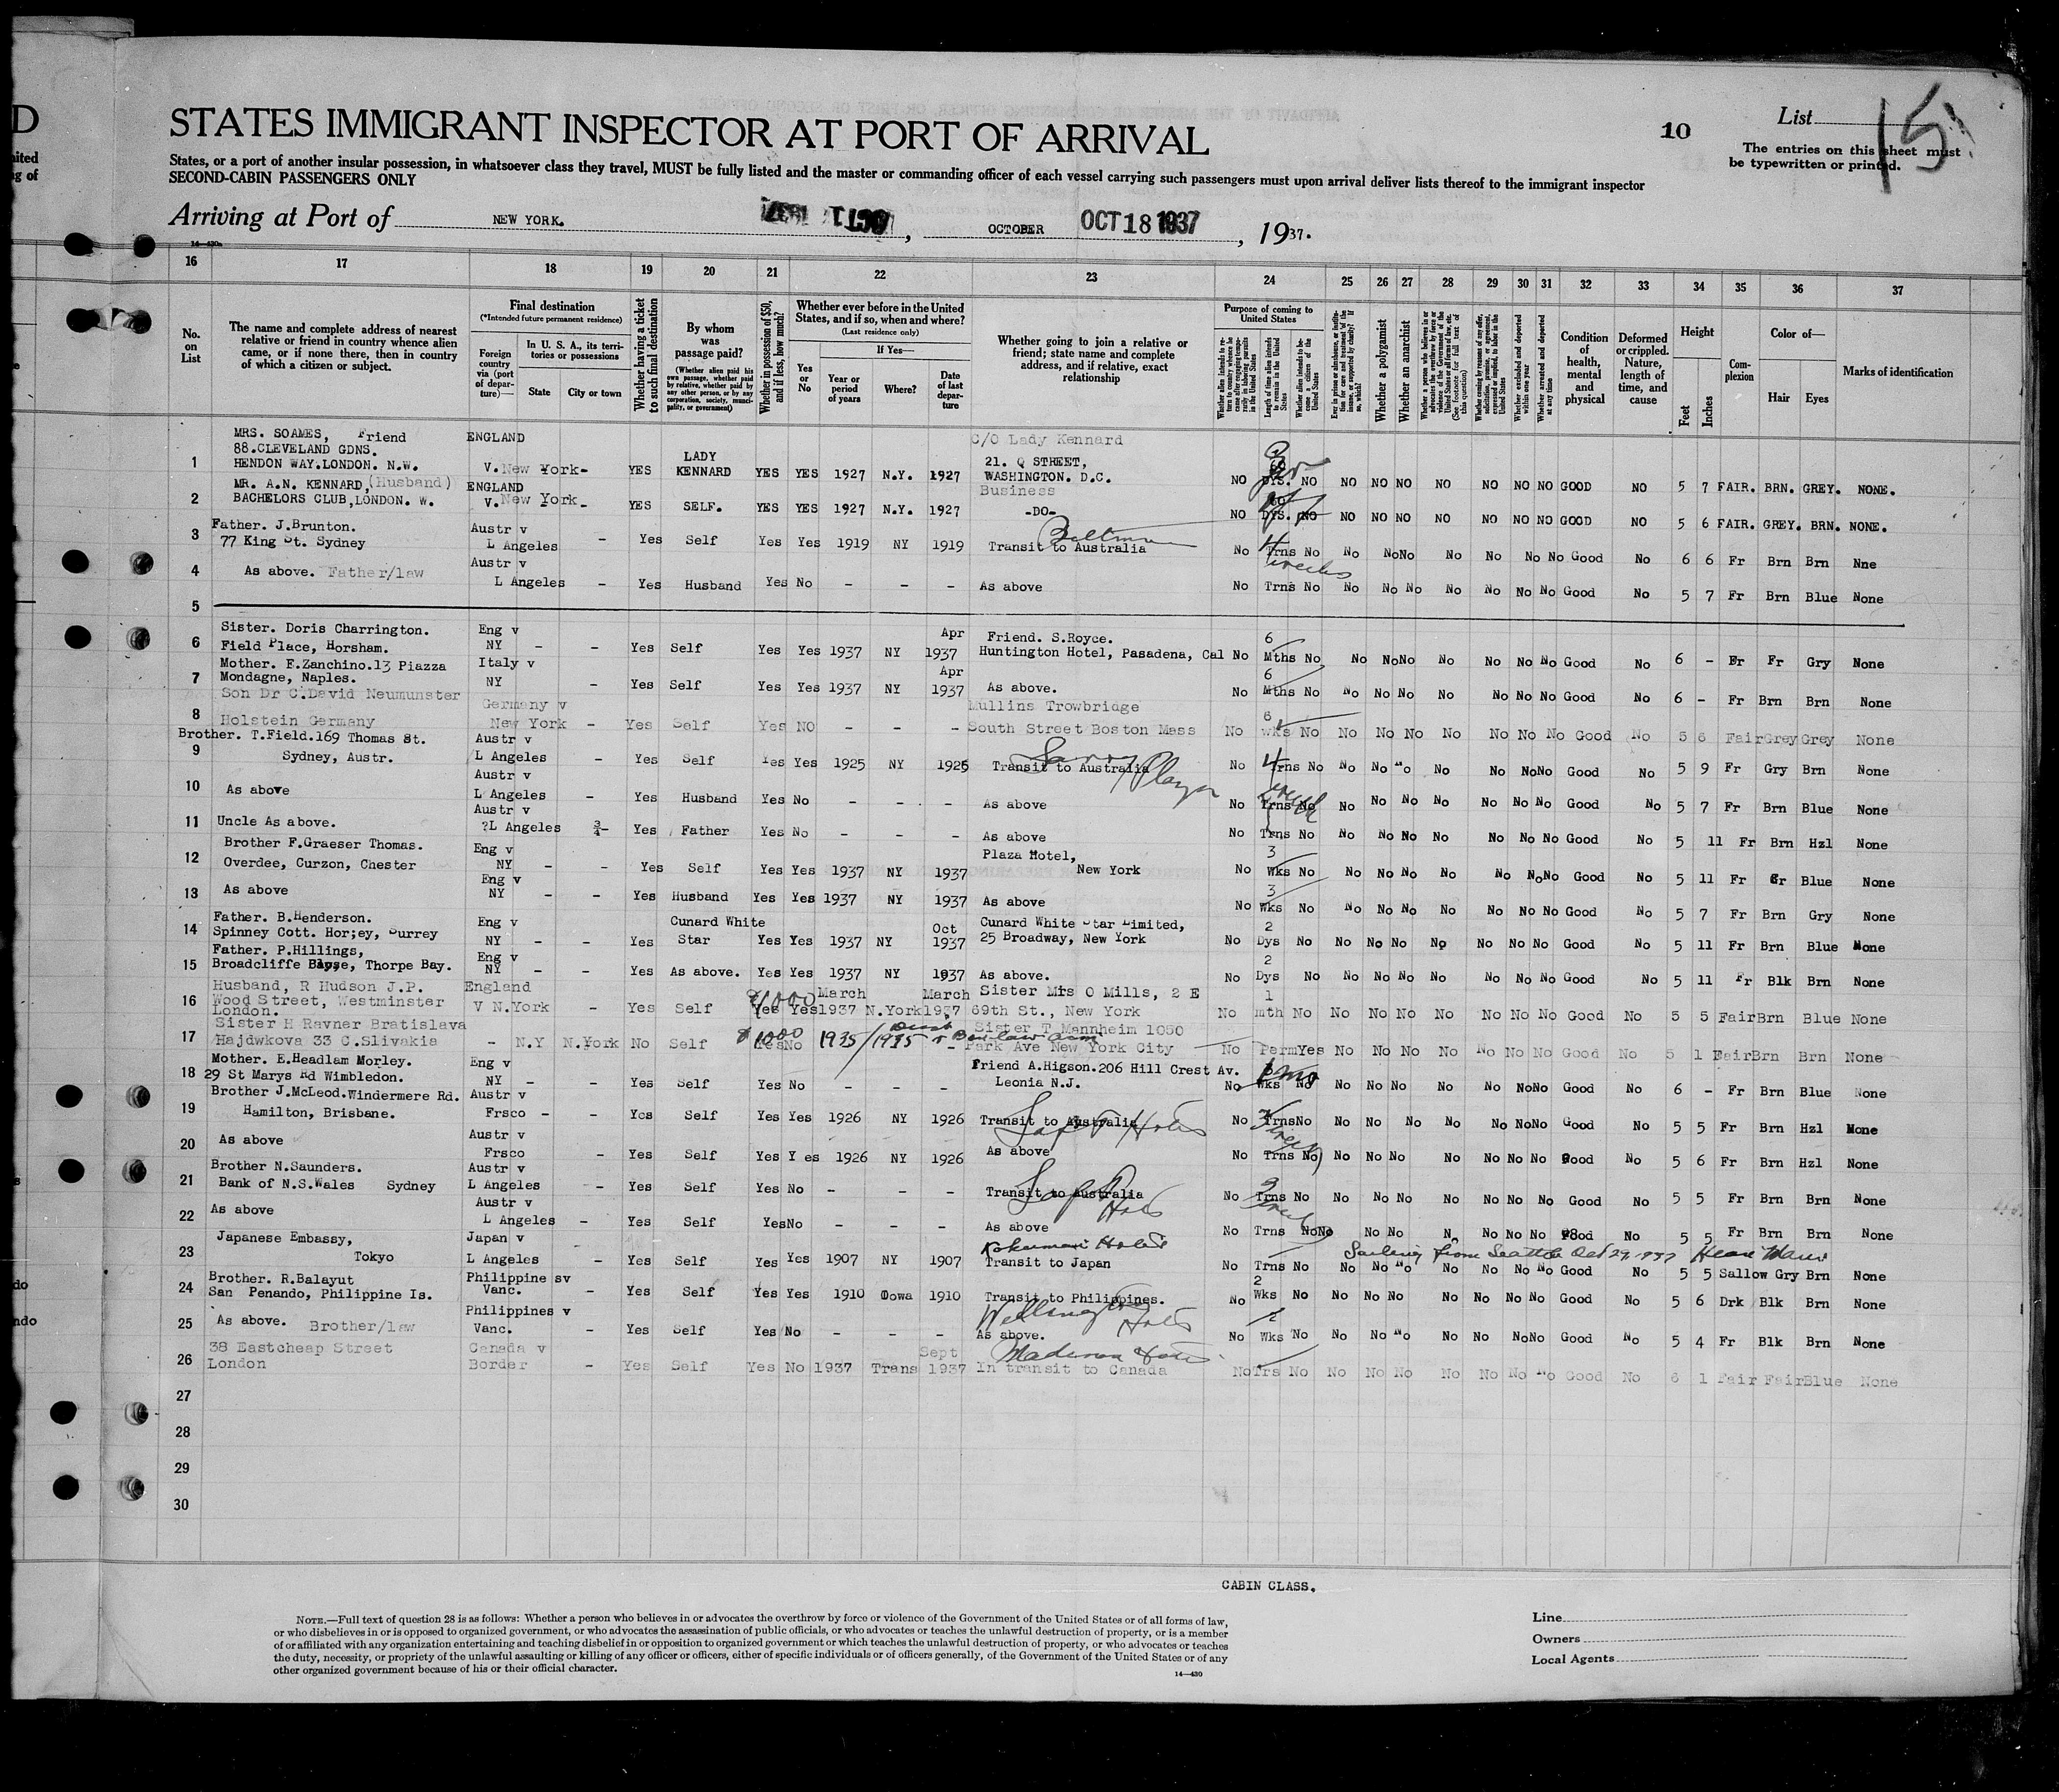 STATES IMMIGRANT INSPECTOR AT PORT OF ARRIVAL
10
List
15
The entries on this sheet must
be typewritten or printed.
States, or a port of another insular possession, in whatsoever class they travel, MUST be fully listed and the master or commanding officer of each vessel carrying such passengers must upon arrival deliver lists thereof to the immigrant inspector
SECOND-CABIN PASSENGERS ONLY
Arriving at Port of NEW YORK. , OCTOBER OCT 18 1937 , 1937.
14-430a
16 17 18 19 20 21 22 23 24 25 26 27 28 29 30 31 32 33 34 35 36 37
No. on List
The name and complete address of nearest relative or friend in country whence alien came, or if none there, then in country of which a citizen or subject.
Final destination
(*Intended future permanent residence)
Foreign country via (port of departure)—
In U. S. A., its territories or possessions
State
City or town
Whether having a ticket to such final destination
By whom was passage paid?
(Whether alien paid his own passage, whether paid by relative, whether paid by any other person, or by any corporation, society, municipality, or government)
Whether in possession of $50, and if less, how much?
Whether ever before in the United States, and if so, when and where?
(Last residence only)
Yes or No
If Yes—
Year or period of years
Where?
Date of last departure
Whether going to join a relative or friend; state name and complete address, and if relative, exact relationship
Purpose of coming to United States
Length of time alien intends to remain in the United States
Whether alien intends to become a citizen of the United States
Whether a polygamist
Whether an anarchist
Whether excluded and deported within one year
Whether arrested and deported at any time
Condition of health, mental and physical
Deformed or crippled. Nature, length of time, and cause
Height
Feet
Inches
Complexion
Color of—
Hair
Eyes
Marks of identification
MRS. SOAMES, Friend ENGLAND C/O Lady Kennard
88.CLEVELAND GDNS. LADY 21. Q STREET,
1 HENDON WAY.LONDON. N.W. V. New York- YES KENNARD YES YES 1927 N.Y. 1927 WASHINGTON. D.C. NO DYS. NO NO NO NO NO NO NO NO GOOD NO 5 7 FAIR. BRN. GREY. NONE.
MR. A.N. KENNARD, (Husband) ENGLAND Business
2 BACHELORS CLUB,LONDON. W. V. New York - YES SELF. YES YES 1927 N.Y. 1927 -DO- NO DYS. NO NO NO NO NO NO NO NO GOOD NO 5 6 FAIR. GREY. BRN. NONE.
Father. J.Brunton. Austr v
3 77 King St. Sydney L Angeles - Yes Self Yes Yes 1919 NY 1919 Transit to Australia No Trns No No No No No No No No Good No 6 6 Fr Brn Brn Nne
Austr v 4 weeks
4 As above. Father/law L Angeles - Yes Husband Yes No - - - As above No Trns No No No No No No No No Good No 5 7 Fr Brn Blue None
5
Sister. Doris Charrington. Eng v Apr Friend. S.Royce. 6
6 Field Place, Horsham. NY - - Yes Self Yes Yes 1937 NY 1937 Huntington Hotel, Pasadena, Cal No Mths No No No No No No No No Good No 6 - Fr Fr Gry None
Mother. E.Zanchino.13 Piazza Italy v Apr 6
7 Mondagne, Naples. NY - Yes Self Yes Yes 1937 NY 1937 As above. No Mths No No No No No No No No Good No 6 - Fr Brn Brn None
Son Dr C.David Neumunster Germany v Mullins Trowbridge 6
8 Holstein Germany New York - Yes Self Yes NO - - - South Street Boston Mass No wks No No No No No No No No Good No 5 6 Fair Grey Grey None
Brother. T.Field.169 Thomas St. Austr v
9 Sydney, Austr. L Angeles - Yes Self Yes Yes 1925 NY 1925 Transit to Australia No Trns No No No No No No No No Good No 5 9 Fr Gry Brn None
Austr v Savoy Plaza 4
10 As above L Angeles - Yes Husband Yes No - - - As above No Trns No No No No No No No No Good No 5 7 Fr Brn Blue None
Austr v
11 Uncle As above. ?L Angeles - Yes Father Yes No - - - As above No Trns No No No No No No No No Good No 5 11 Fr Brn Hzl None
Brother F.Graeser Thomas. Eng v Plaza Hotel, 3
12 Overdee, Curzon, Chester NY - - Yes Self Yes Yes 1937 NY 1937 New York No Wks No No No No No No No No Good No 5 11 Fr Gr Blue None
Eng v 3
13 As above NY - - Yes Husband Yes Yes 1937 NY 1937 As above No Wks No No No No No No No No Good No 5 7 Fr Brn Gry None
Father. B.Henderson. Eng v Cunard White Oct Cunard White Star Limited, 2
14 Spinney Cott. Hor;ey, Surrey NY - - Yes Star Yes Yes 1937 NY 1937 25 Broadway, New York No Dys No No No No No No No No Good No 5 11 Fr Brn Blue None
Father. P.Hillings, Eng v 2
15 Broadcliffe , Thorpe Bay. NY - - Yes As above. Yes Yes 1937 NY 1937 As above. No Dys No No No No No No No No Good No 5 11 Fr Blk Brn None
Husband, R Hudson J.P. England $1000 March March Sister Mrs O Mills, 2 E 1
16 Wood Street, Westminster V N.York - Yes Self Yes Yes 1937 N.York 1937 69th St., New York No mth No No No No No No No No Good No 5 5 Fair Brn Blue None
London.
Sister H Ravner Bratislava $1000 1935/1935 Sister T Mannheim 1050
17 Hajdwkova 33 C.Slivakia - N.Y N.York No Self Yes No - Park Ave New York City No Perm Yes No No No No No No No Good No 5 1 Fair Brn Brn None
Mother. E.Headlam Morley. Eng v Friend A.Higson.206 Hill Crest Av.
18 29 St Marys Rd Wimbledon. NY - - Yes Self Yes No - - - Leonia N.J. No Wks No No No No No No No No Good No 6 - Fr Brn Blue None
Brother J.McLeod.Windermere Rd. Austr v
19 Hamilton, Brisbane. Frsco - - Yes Self Yes Yes 1926 NY 1926 Transit to Australia No Trns No No No No No No No No Good No 5 5 Fr Brn Hzl None
Austr v
20 As above Frsco - Yes Self Yes Yes 1926 NY 1926 As above No Trns No No No No No No No No Good No 5 6 Fr Brn Hzl None
Brother N.Saunders. Austr v
21 Bank of N.S.Wales Sydney L Angeles - Yes Self Yes No - - - Transit to Australia No Trns No No No No No No No No Good No 5 5 Fr Brn Brn None
Austr v
22 As above L Angeles - Yes Self Yes No - - - As above No Trns No No No No No No No Good No 5 5 Fr Brn Brn None
Japanese Embassy, Japan v Sailing from Seattle Oct 29, 1937
23 Tokyo L Angeles - Yes Self Yes Yes 1907 NY 1907 Transit to Japan No Trns No No No No No No No No Good No 5 5 Sallow Gry Brn None
Brother. R.Balayut Philippine sv 2
24 San Penando, Philippine Is. Vanc. - Yes Self Yes Yes 1910 Iowa 1910 Transit to Philippines. No Wks No No No No No No No No Good No 5 6 Drk Blk Brn None
Philippines v Wellington Hotel 2
25 As above. Brother/law Vanc. - Yes Self Yes No - - - As above. No Wks No No No No No No No No Good No 5 4 Fr Blk Brn None
38 Eastcheap Street Canada v Sept Madison Hotel
26 London Border - Yes Self Yes No 1937 Trans 1937 In transit to Canada No Trs No No No No No No No No Good No 6 1 Fair Fair Blue None
27
28
29
30
CABIN CLASS.
NOTE.—Full text of question 28 is as follows: Whether a person who believes in or advocates the overthrow by force or violence of the Government of the United States or of all forms of law,
or who disbelieves in or is opposed to organized government, or who advocates the assassination of public officials, or who advocates or teaches the unlawful destruction of property, or is a member
of or affiliated with any organization entertaining and teaching disbelief in or opposition to organized government or which teaches the unlawful destruction of property, or who advocates or teaches
the duty, necessity, or propriety of the unlawful assaulting or killing of any officer or officers, either of specific individuals or of officers generally, of the Government of the United States or of any
other organized government because of his or their official character.
14—430
Line
Owners
Local Agents